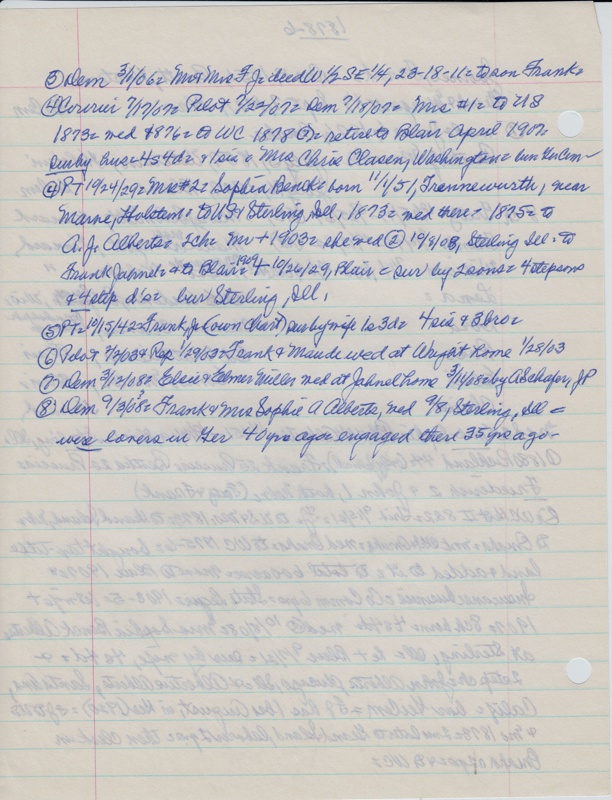 1878-6
③ Dem 3/11/06 = Mr + Mrs F Jr deed W 1/2 SE 1/4, 23-18-11 = to son Frank =
④ Courier 7/17/07 = Pilot 7/22/07 = Dem 7/18/07 = Mrs #1 = to US
1873 = wed 1876 = to WC 1878 ② = retire to Blair April 1907 =
sur by hus = 4s 4d = + 1 sis = Mrs Chris Clasen, Washington = bur Cem -
④ PT 10/24/29 = Mrs #2 = Sophia Benck = born 11/1/51, Frennewurth, near
Marne, Holstein = to US + Sterling, Ill, 1873 = wed there = 1875 = to
A. J. Alberts = + 1903 = she wed ② 10/8/08, Sterling Ill = to
Frank Jahnel = + to Blair = 1909 + 10/26/29, Blair = sur by 2 sons = 4 stepsons
& 4 step d's = bur Sterling, Ill,
⑤ PT = 10/15/42 = Frank, Jr (own chart) sur by wife 1s 3d = 4 sis + 3 bro =
⑥ Pilot & Rep 1/29/03 = Frank & Maude wed at Wright home 1/28/03
⑦ Dem 3/12/08 = Elsie & Elmer Miller wed at Jahnel home 3/11/08 = by A Schafer, JP
⑧ Dem 9/3/08 = Frank & Mrs Sophie A Alberts, wed 9/8, Sterling, Ill =
were lovers in Ger 40 yrs ago = engaged there 35 yrs ago -